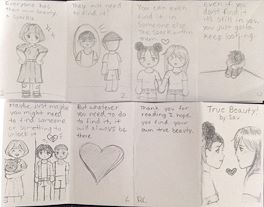 Everyone has
their own beauty,
a sparkle.
They will need
to find it!
2
You can even
find it in
someone else
the spark within
them
Even if you
don't find it
its still in
you, you just gotta
keep looking.
Maybe just maybe
you might need
to find someone
or something to
unlock it
5
But whatever
you need to do
to find it, it
will always be
there.
6
Thank you for
reading I hope
you find your
own true beauty.
True Beauty!
by Sav